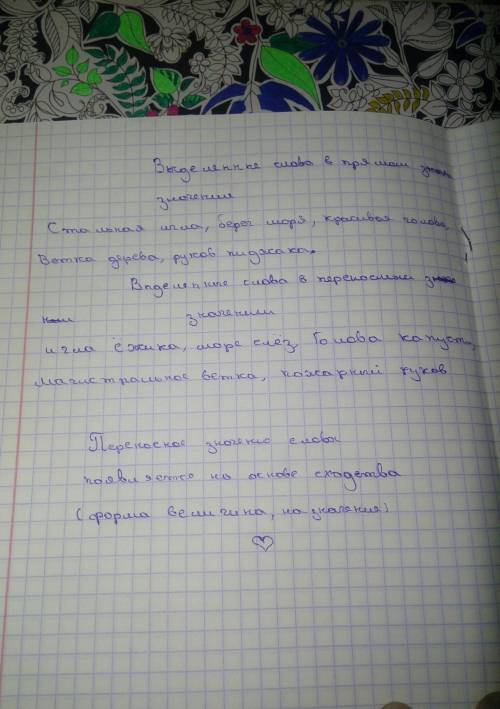 Выделенные слова в прямом
значении
Стальная игла, берег моря, красивая голова,
Ветка дерева, рукав пиджака.
Вделенные слова в переносным
значении
игла ёжика, море слёз, Голова капусты,
магистральное ветка, пожарный рукав
Переносное значение слова
появляется на основе сходства
(форма величина, назначения)